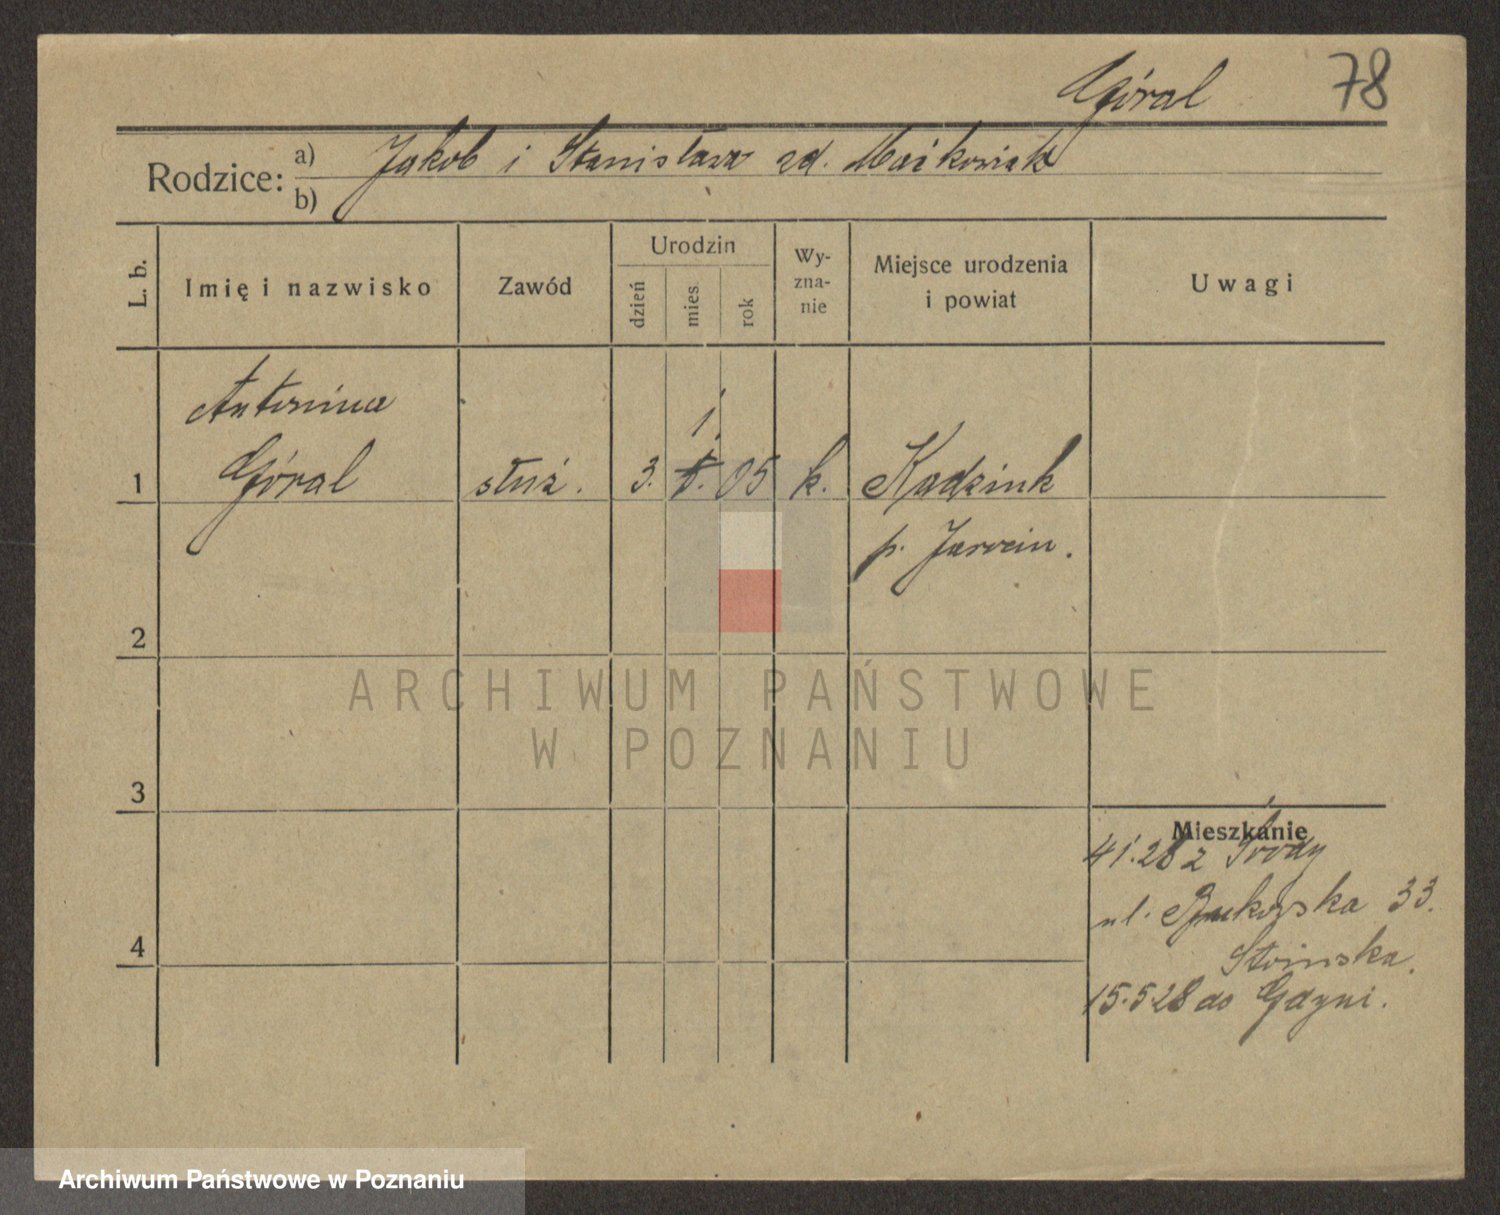 Góral 78
Rodzice: a) Jakob i Stanisława zd. Maćkowiak
b)
L. b. Imię i nazwisko Zawód Urodzin dzień mies. rok Wy-zna-nie Miejsce urodzenia i powiat Uwagi
Antonina 1.
1 Góral służ. 3. 05 k. Kadzink
p. Jarocin.
2
ARCHIWUM PAŃSTWOWE
W POZNANIU
3
Mieszkanie
4.1.28 z Środy
ul. Bukowska 33.
4 Stoinska.
15.5.28 do Gdyni.
Archiwum Państwowe w Poznaniu